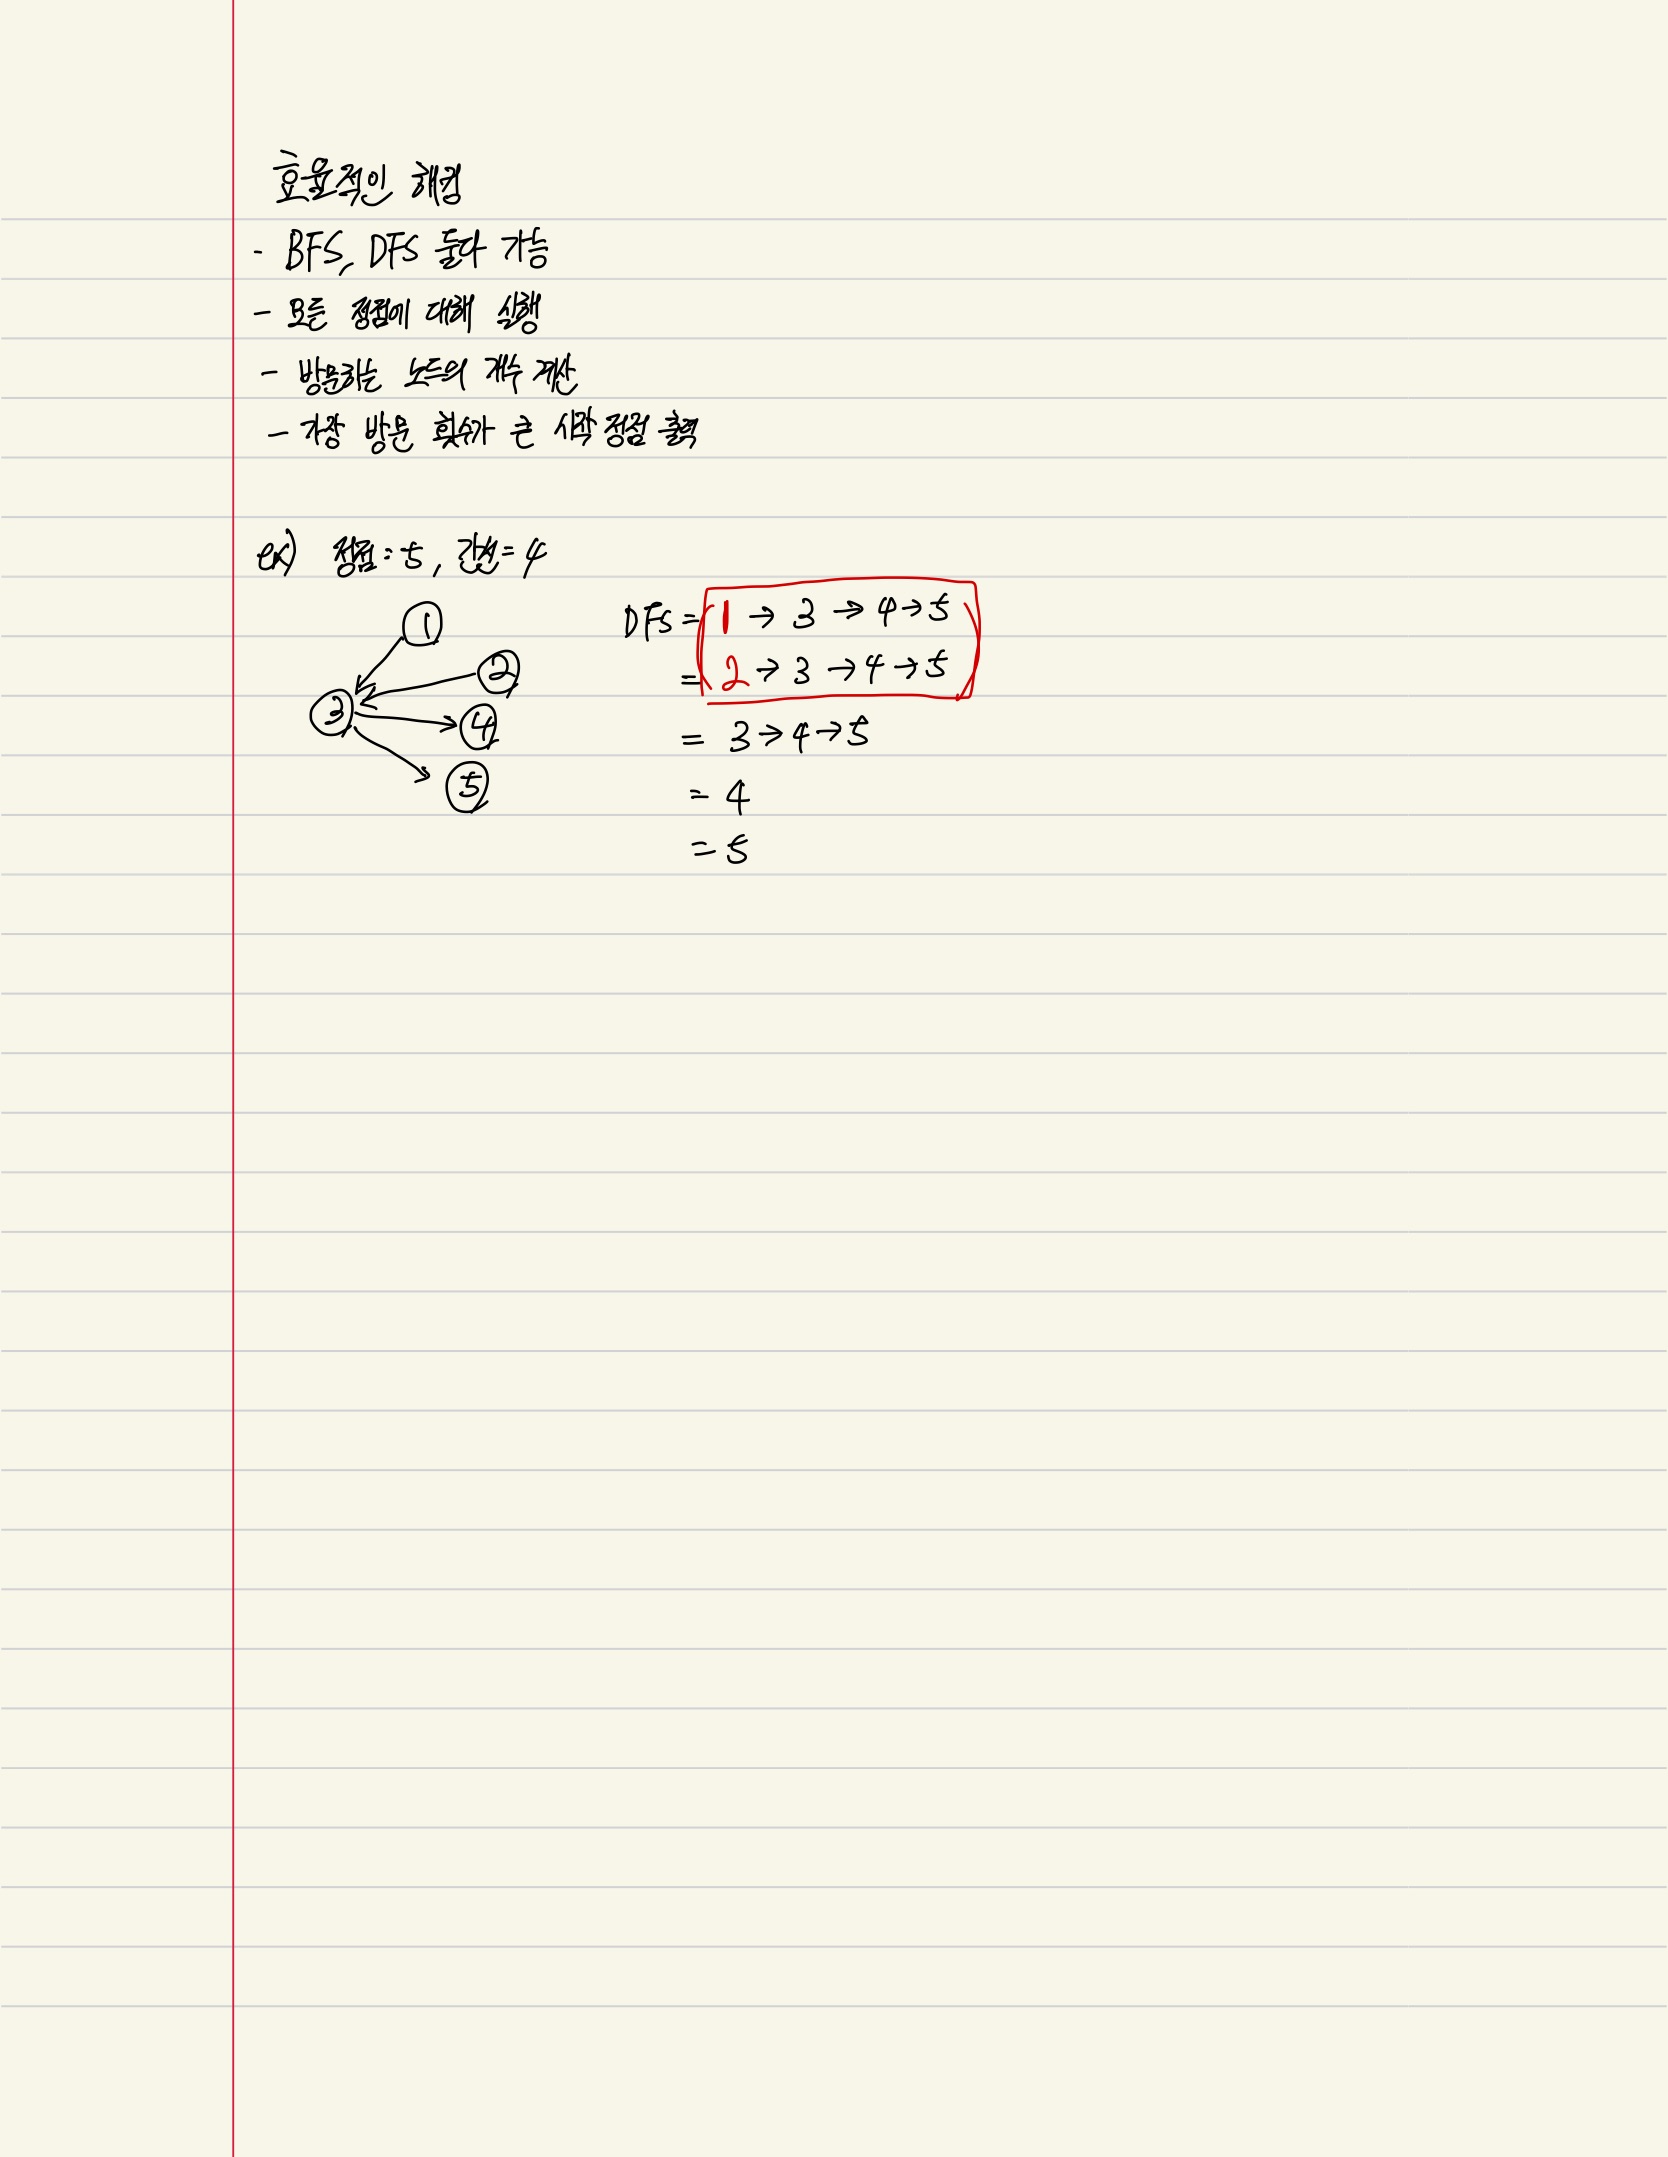 효율적인 해킹
- BFS, DFS 둘다 가능
- 모든 정점에 대해 실행
- 방문하는 노드의 개수 계산
- 가장 방문 횟수가 큰 시작 정점 출력
ex) 정점=5, 간선=4
1
2
3
4
5
DFS = 1 → 3 → 4 → 5
= 2 → 3 → 4 → 5
= 3 → 4 → 5
= 4
= 5